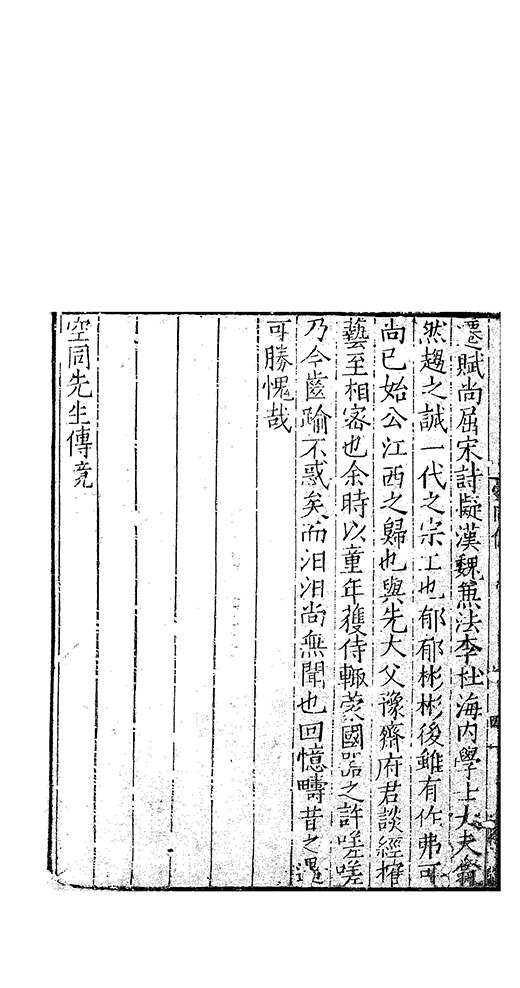 遷賦尚屈宋詩擬漢魏兼法李杜海內學士大夫翕
然趨之誠一代之宗工也郁郁彬彬後雖有作弗可
尚已始公江西之歸也與先大父豫齋府君談經搉
藝至相密也余時以童年獲侍輙蒙國器之許嗟嗟
乃今齒踰不惑矣而汨汨尚無聞也回憶疇昔之遇
可勝愧哉
空同先生傳竟